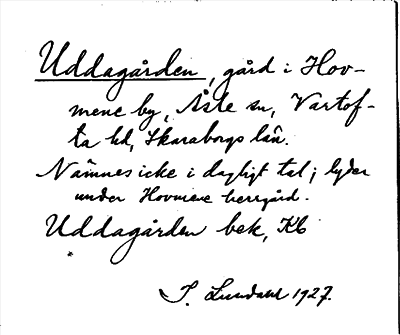 Uddagården, gård i Hov-
mene by, Åsle sn, Vartof-
ta hd, Skaraborgs län.
Nämnes icke i dagligt tal; lyder
under Hovmene herrgård.
Uddagården bek, Kb
S. Lundahl 1927.